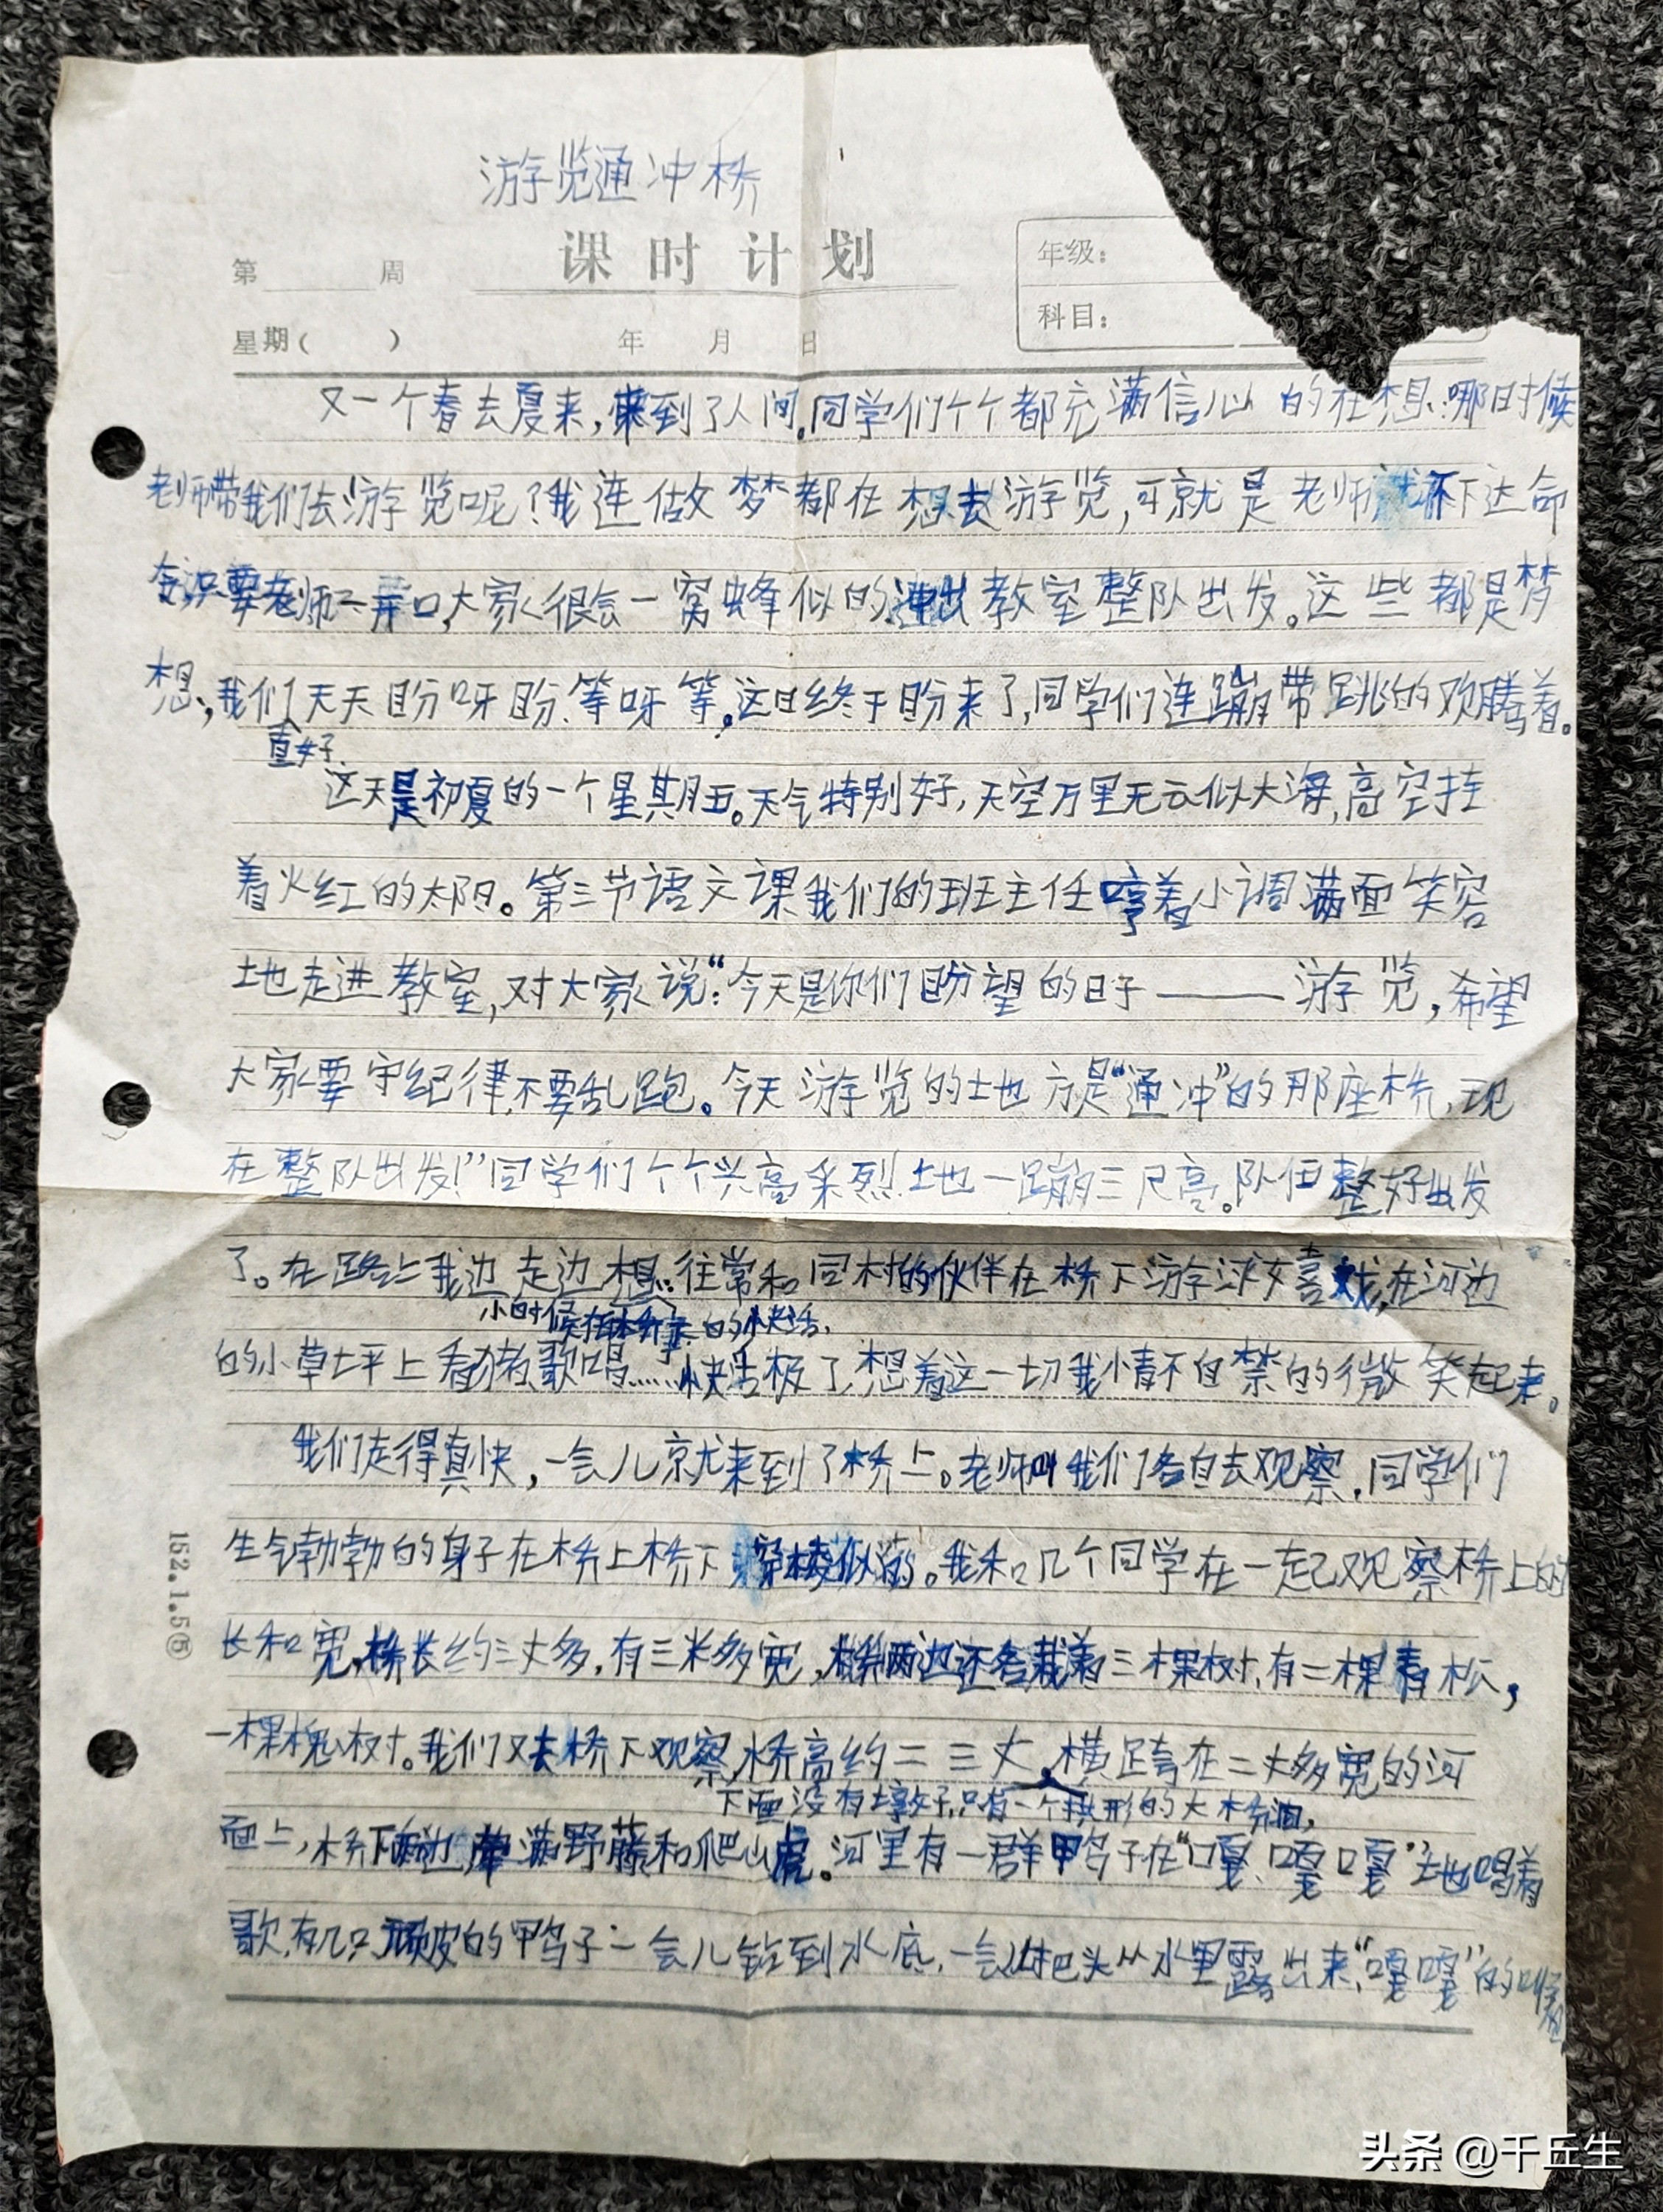 游览通冲桥
课时计划
第 周
年级：
科目：
星期( ) 年 月 日
又一个春去夏来，来到了人间。同学们个个都充满信心的在想：哪时候
老师带我们去游览呢？我连做梦都在想去游览，可就是老师还不下达命
令，只要老师一开口，大家很会一窝蜂似的冲出教室整队出发。这些都是梦
想，我们天天盼呀盼、等呀等，这日终于盼来了，同学们连蹦带跳的欢腾着。
真好
这天是初夏的一个星期五。天气特别好，天空万里无云似大海，高空挂
着火红的太阳。第三节语文课我们的班主任哼着小调满面笑容
地走进教室，对大家说：“今天是你们盼望的日子——游览，希望
大家要守纪律，不要乱跑。今天游览的地方是“通冲”的那座桥，现
在整队出发！”同学们个个兴高采烈地一蹦三尺高。队伍整好出发
了。在路上我边走边想：往常和同村的伙伴在桥下游泳嬉戏，在河边
小时候在桥 的快活，
的小草坪上看猪、歌唱……快活极了，想着这一切我情不自禁的微笑起来。
我们走得真快，一会儿就来到了桥上。老师叫我们各自去观察，同学们
生气勃勃的身子在桥上桥下穿梭似的。我和几个同学在一起观察桥上的
长和宽，桥长约三丈多，有三米多宽，桥两边还各栽着三棵树，有二棵青松，
一棵槐树。我们又去桥下观察，桥高约二三丈，横跨在二丈多宽的河
下面没有墩子，只有一个拱形的大桥洞，
面上，桥下 满野藤和爬山虎。河里有一群鸭子在“嘎、嘎嘎”地唱着
歌，有几只顽皮的鸭子一会儿钻到水底，一会儿把头从水里露出来，“嘎嘎”的叫着
152.1.5⑤
头条 @千丘生